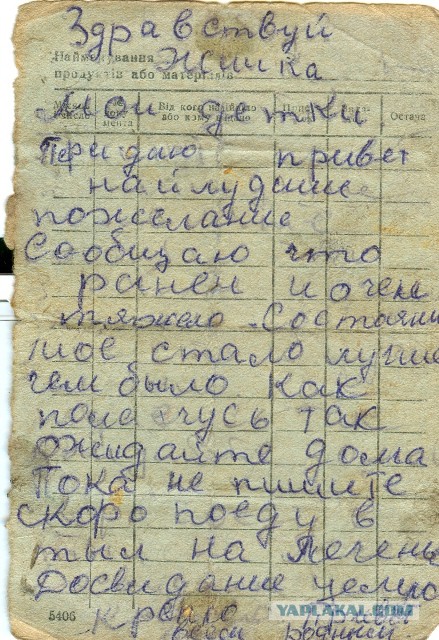 Здравствуй
Найменування
Жинка
продуктів або матеріялів
Мои детки
Від кого надійшло
або кому видано
Остача
Придаю привет
найлудшие
пожелание
Сообщаю что
ранен и очен
тяжело. Состояни
мое стало лучше
чем было как
полечусь так
ожидайте дома
Пока не пишите
скоро поеду в
тыл на лечень
Досвидание целую
5406
крепко привет
всем родным
YAPLAKAL.COM